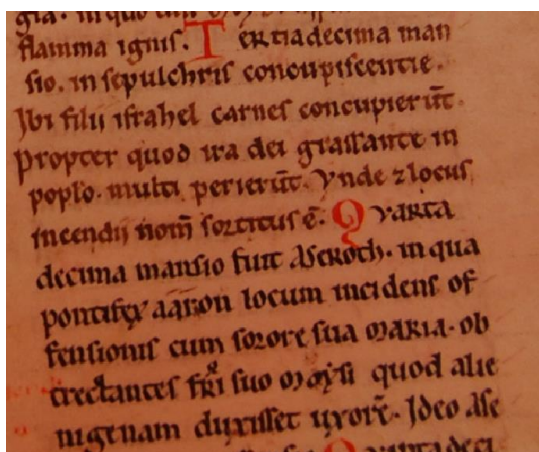 flamma ignis. Tertiadecima man
sio. in sepulchris concupiscentie.
Ibi filii israhel carnes concupierūt.
Propter quod ira dei grassante in
poplo. multi perierūt. Vnde ⁊ locus
incendii nom̄ sortitus ē. Qvarta
decima mansio fuit Aseroth. in qua
pontifex aaron locum incidens of
fensionis cum sorore sua Maria. ob
trectantes fr̄i suo Moysi quod alie
nigenam duxisset uxorē. Ideo Ase